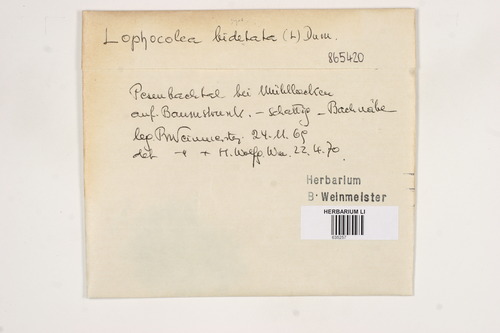 Lophocolea bidetata (L) Dum.
865420
Pesenbachtal bei Mühllacken
auf Baumstrunk. – schattig – Bachnähe
leg B. Weinmeister 24.11.69
det – " + H. Wolfg. 22.4.70
Herbarium
B. Weinmeister
HERBARIUM LI